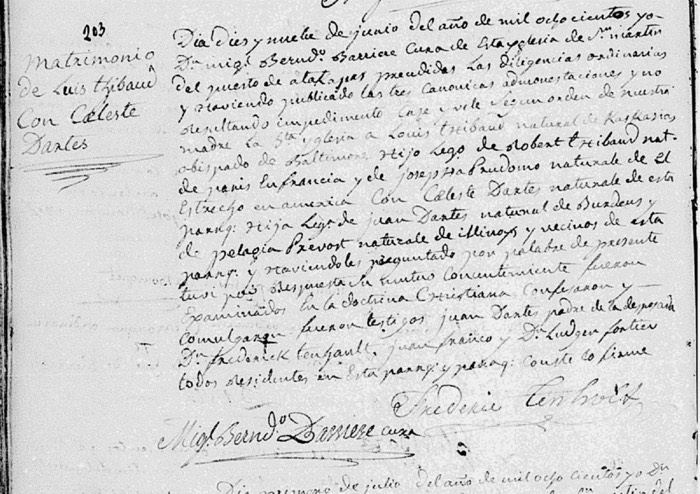 203
Matrimonio
de Luis thibaud
Con Cæleste
Dantes
Dia dies y nuebe de junio del año de mil ocho cientos yo
Dn. migl. Bernd.o Barriere Cura de Esta yglesia de Sn. martin
del puesto de atakapas precedidas Las diligencias ordinarias
y Haviendo publicado las tres canonicas admonestaciones y no
Resultando impedimento Case y segun orden de nuestra
madre La Sta. yglesia a Louis thibaud natural de Kaskasias
obispado de Baltimore Hijo Leg.o de Robert thibaud nat.
de paris En francia y de josepha Prudomo naturale de El
Estrecho en america Con Cæleste Dantes naturale de esta
parrq: Hija Leg.a de juan Dantes natural de Burdeus y
de pelagia Prevost naturale de illinoys y vecinos de esta
parrq. y Haviendoles preguntado por palabre de presente
tuvi por Respuesta Su mutuo Concentimiente fueron
Examinados En la doctrina Christiana Confesaron y
Comulgaron fueron testigos juan Dantes padre de la desposada
Dn. frederick juan franco y Dn. Ludgen fontien
todos Residentes en Esta parrq. y parrq: conste lo firme
frederic
Migl. Bernd.o Barriere cura
Dia primero de julio del año de mil ocho cientos yo Dn